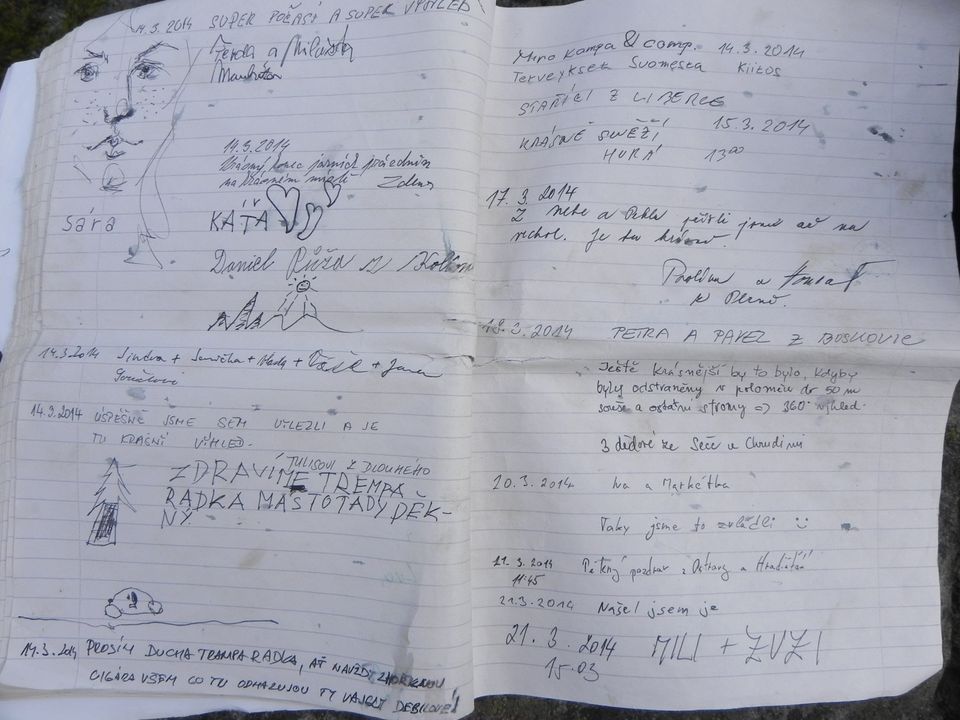 14.3.2014 SUPER POČASÍ A SUPER VÝHLED
Ferda a
14.3.2014
Krásný konec jarních prázdnin
na krásném místě Zdena
Sára
KÁŤA
Daniel Růža
14.3.2014 Jindra + + + Vašík + Jana
14.3.2014 ÚSPĚŠNĚ JSME SEM VYLEZLI A JE
TU KRÁSNÝ VÝHLED.
TULISOVI Z DLOUHÉHO
ZDRAVÍME TREMPA
RADKA MÁŠ TO TADY PĚK-
NÝ
14.3.2014 PROSÍM DUCHA TRAMPA RADKA, AŤ NAVŽDY
CIGÁRA VŠEM CO TU ODHAZUJOU TY VAJGLY DEBILOVÉ!
Miro Kampa & comp. 14.3.2014
Terveykset Suomesta Kiitos
STAŘÍCI Z LIBERCE
KRÁSNĚ SVĚŽÍ 15.3.2014
HURÁ 13⁰⁰
17.3.2014
Z nebe a pekla přišli jsme až na
vrchol. Je tu krásně.
a
z Brna.
18.3.2014 PETRA A PAVEL Z BOSKOVIC
Ještě krásnější by to bylo, kdyby
byly odstraněny v poloměru do 50 m
souše a ostatní stromy => 360° výhled.
3 dědové ze Seče u Chrudimi
20.3.2014 Iva a Markétka
Taky jsme to zvládli
21.3.2014 Pěkný pozdrav z Ostravy a
11:45
21.3.2014 Našel jsem je
21.3.2014 MILI + ZUZI
15.03